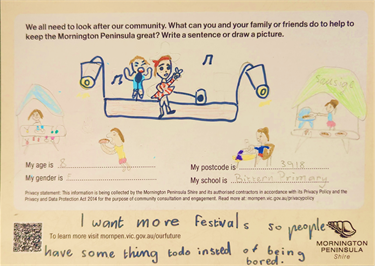 We all need to look after our community. What can you and your family or friends do to help to
keep the Mornington Peninsula great? Write a sentence or draw a picture.
Sausige
My age is 8
My postcode is 3918
My gender is
My school is Bittern Primary
Privacy statement: This information is being collected by the Mornington Peninsula Shire and its authorised contractors in accordance with its Privacy Policy and the
Privacy and Data Protection Act 2014 for the purpose of community consultation and engagement. Read more at: mornpen.vic.gov.au/privacypolicy
I want more festivals so people
To learn more visit mornpen.vic.gov.au/ourfuture
have some thing todo insted of being
bored.
MORNINGTON
PENINSULA
Shire